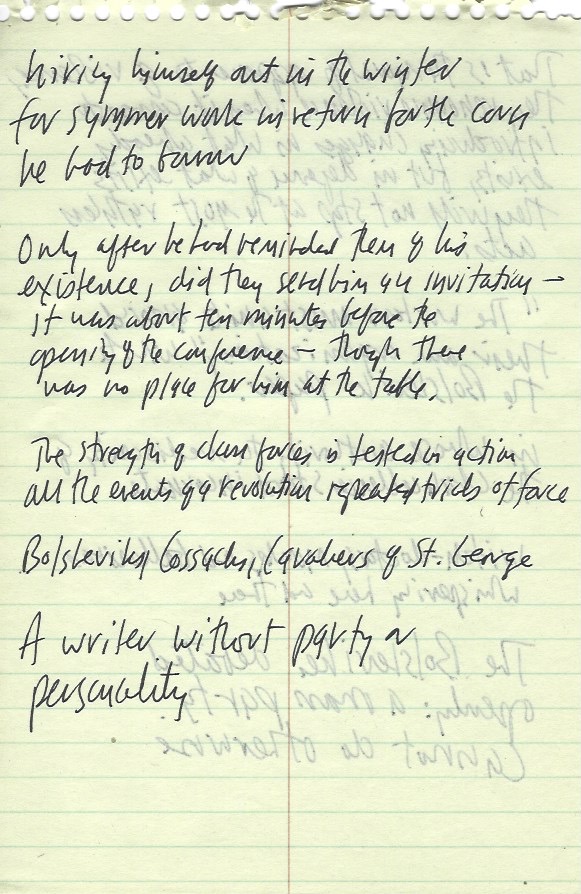 hiring himself out in the winter
for summer work in return for the corn
he had to borrow
Only after he had reminded them of his
existence, did they send him an invitation –
it was about ten minutes before the
opening of the conference – though there
was no place for him at the table.
The strength of class forces is tested in action
all the events of a revolution repeated trials of force
Bolsheviks, Cossacks, Cavaliers of St. George
A writer without party or
personality